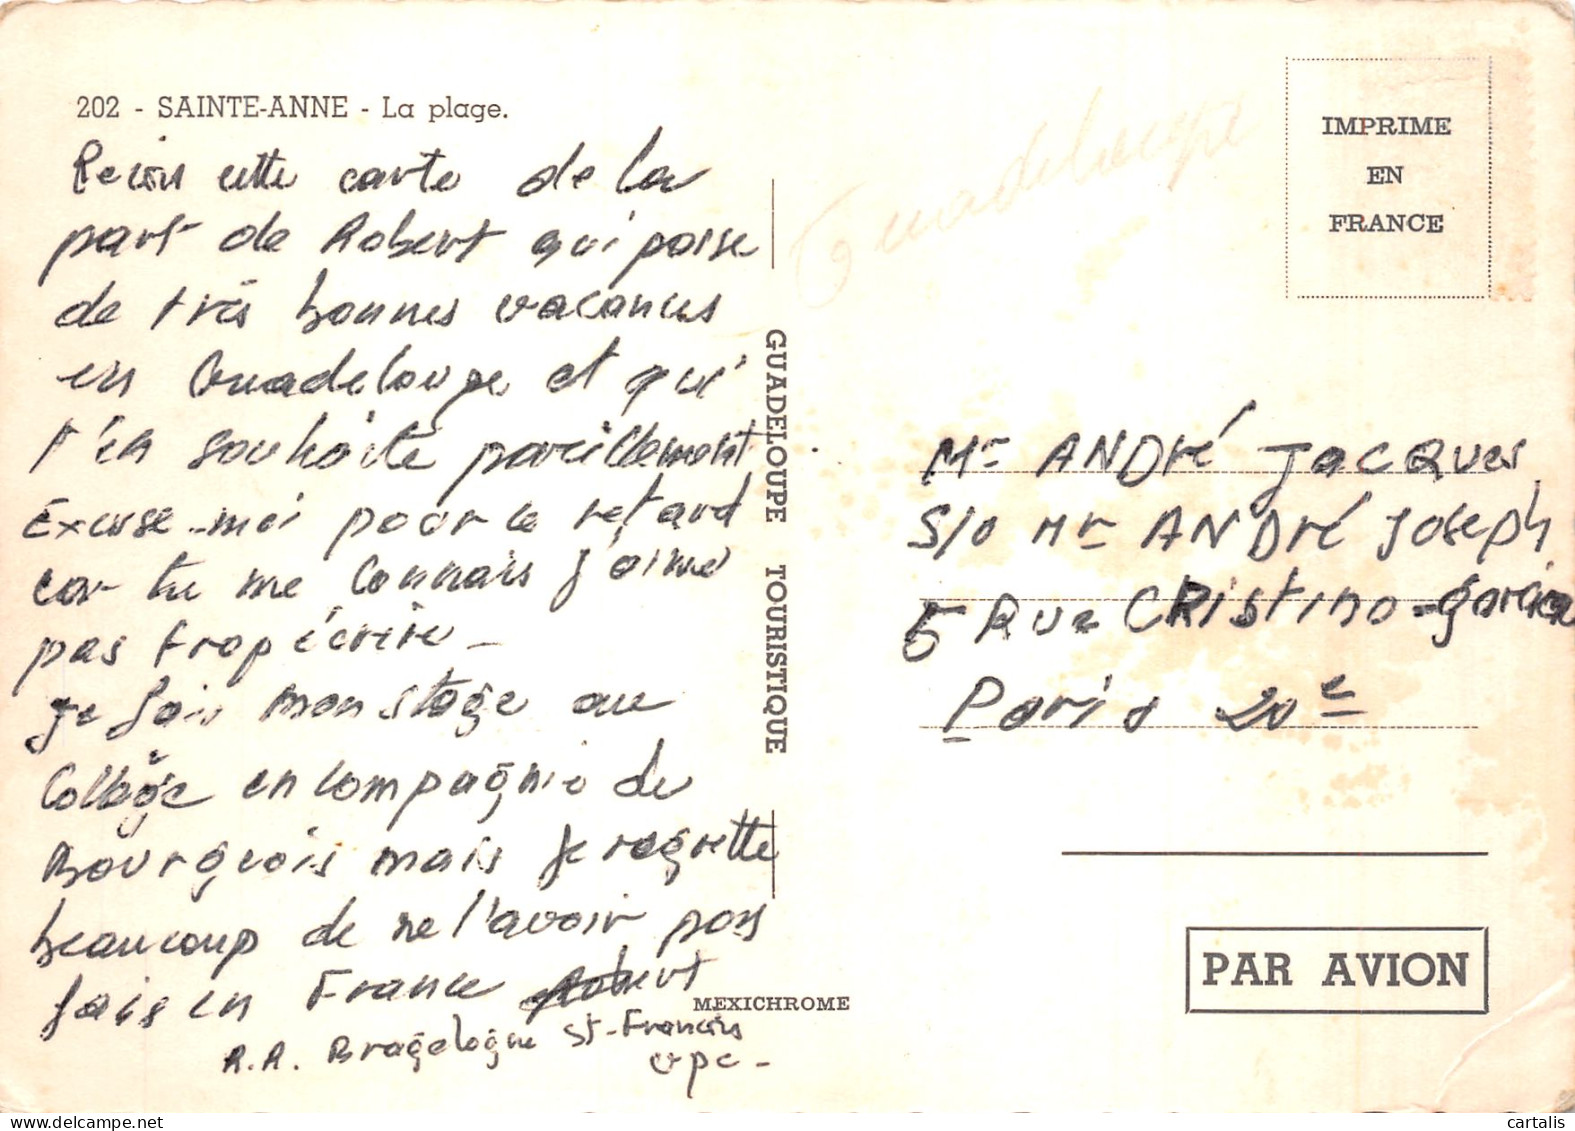 202 - SAINTE-ANNE - La plage.
Recois cette carte de la
part de Robert qui passe
de très bonnes vacances
en Guadeloupe et qui
t'en souhaite pareillement
Excuse-moi pour le retard
car tu me connais j'aime
pas trop écrire -
je fais mon stage au
Collège en compagnie de
Bourgeois mais je regrette
beaucoup de ne l'avoir pas
fais en France Robert
R.A. Bragelogne St-Francois
GUADELOUPE TOURISTIQUE
MEXICHROME
Guadeloupe
IMPRIME
EN
FRANCE
Mr ANDRé Jacques
S/O Mr ANDRé Joseph
5 Rue CRistino-garcia
Paris 20e
PAR AVION
cartalis